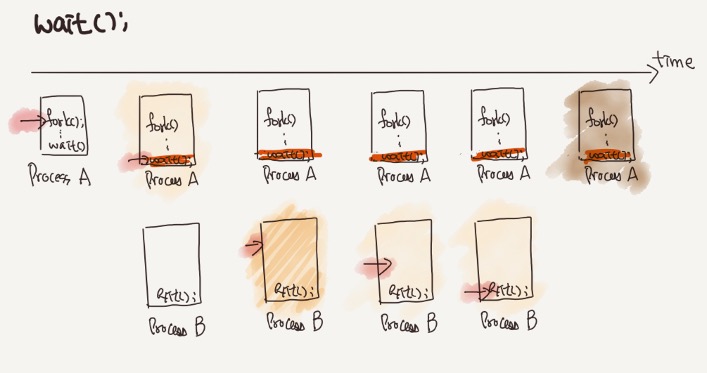 wait();
time
fork();
wait()
Process A
fork()
wait();
Process A
fork()
wait();
Process A
fork()
wait();
Process A
fork()
wait();
Process A
fork()
wait();
Process A
Process B
Process B
Process B
Process B